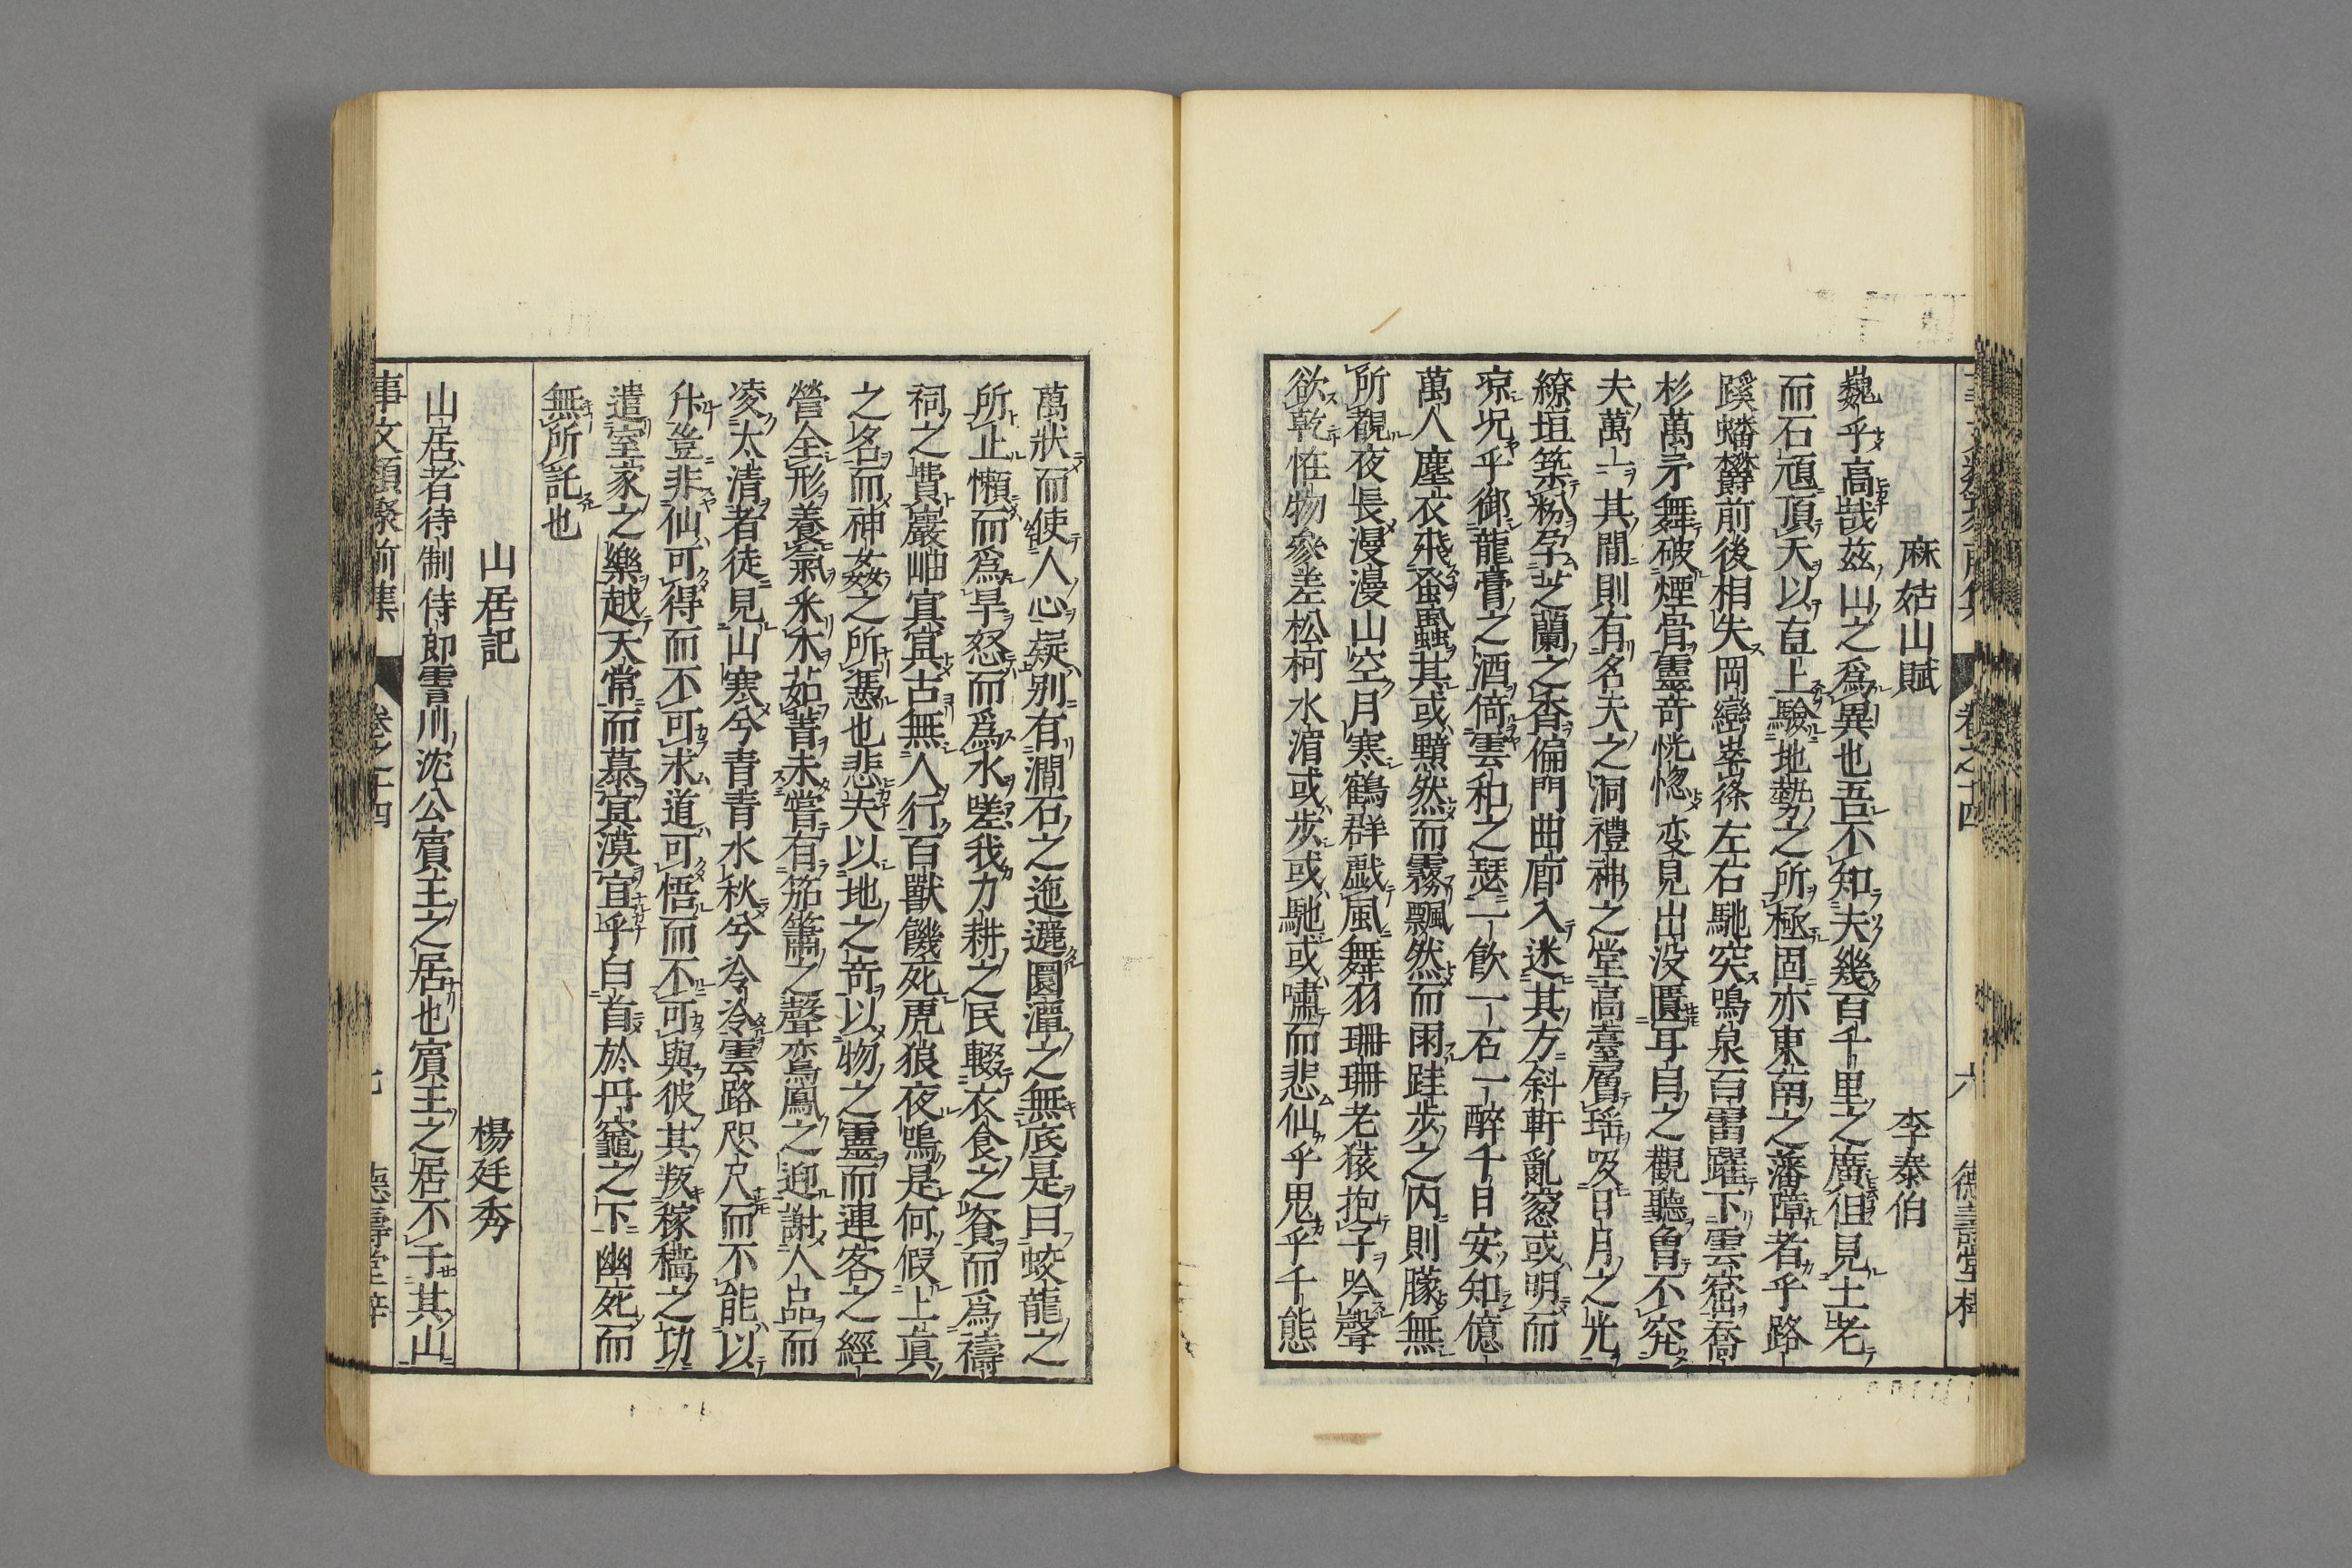 麻姑山賦　李泰伯
巍乎高哉茲山之為異也吾不知夫幾百千里之廣但見土老
而石頑頂天以直上驗地勢之所極固亦東南之藩障者乎路
蹊蟠欝前後相失岡巒崒崔左右馳突鳴泉百雷躍下雲窟喬
杉萬矛舞破煙骨靈奇恍惚変見出没匱耳目之觀聽曾不究
夫萬一其間則有名夫之洞禮神之堂高臺層瑶吸日月之光
繚垣築粉孕芝蘭之香偏門曲廊入迷其方斜軒亂窓或明而
凉况乎御龍膏之酒倚雲和之瑟一飲一石一醉千日安知億
萬人塵衣飛蚤蝨其或顥然而霧飄然而雨跬步之内則朦無
所覩夜長漫漫山空月寒鶴群戲風舞羽珊珊老猿抱子吟聲
欲乾恠物參差松柯水湄或歩或馳或嘯而悲仙乎鬼乎千態
萬狀而使人心疑别有澗石之迤邐圜潭之無底是曰蛟龍之
所止懶而為旱怒而為水嗟我力耕之民輟衣食之資而為禱
祠之費巖岫冥冥古無人行百獸饑死虎狼夜嗚是何假上真
之名而神姦之所憑也悲夫以地之奇以物之靈而連客之經
營全形養氣釆木茹菁未嘗有笳簫之聲鸞鳳之迎謝人品而
凌太清者徒見山寒兮青青水秋兮泠泠雲路咫尺而不能以
升豈非仙可得而不可求道可悟而不可與彼其叛稼穡之功
遣室家之樂越天常而慕冥漠宜乎白首於丹竈之下幽死而
無所託也
山居記　楊廷秀
山居者待制侍郎霅川沈公賓王之居也賓王之居不于其山
事文類聚前集　卷之十四　七　德壽堂梓